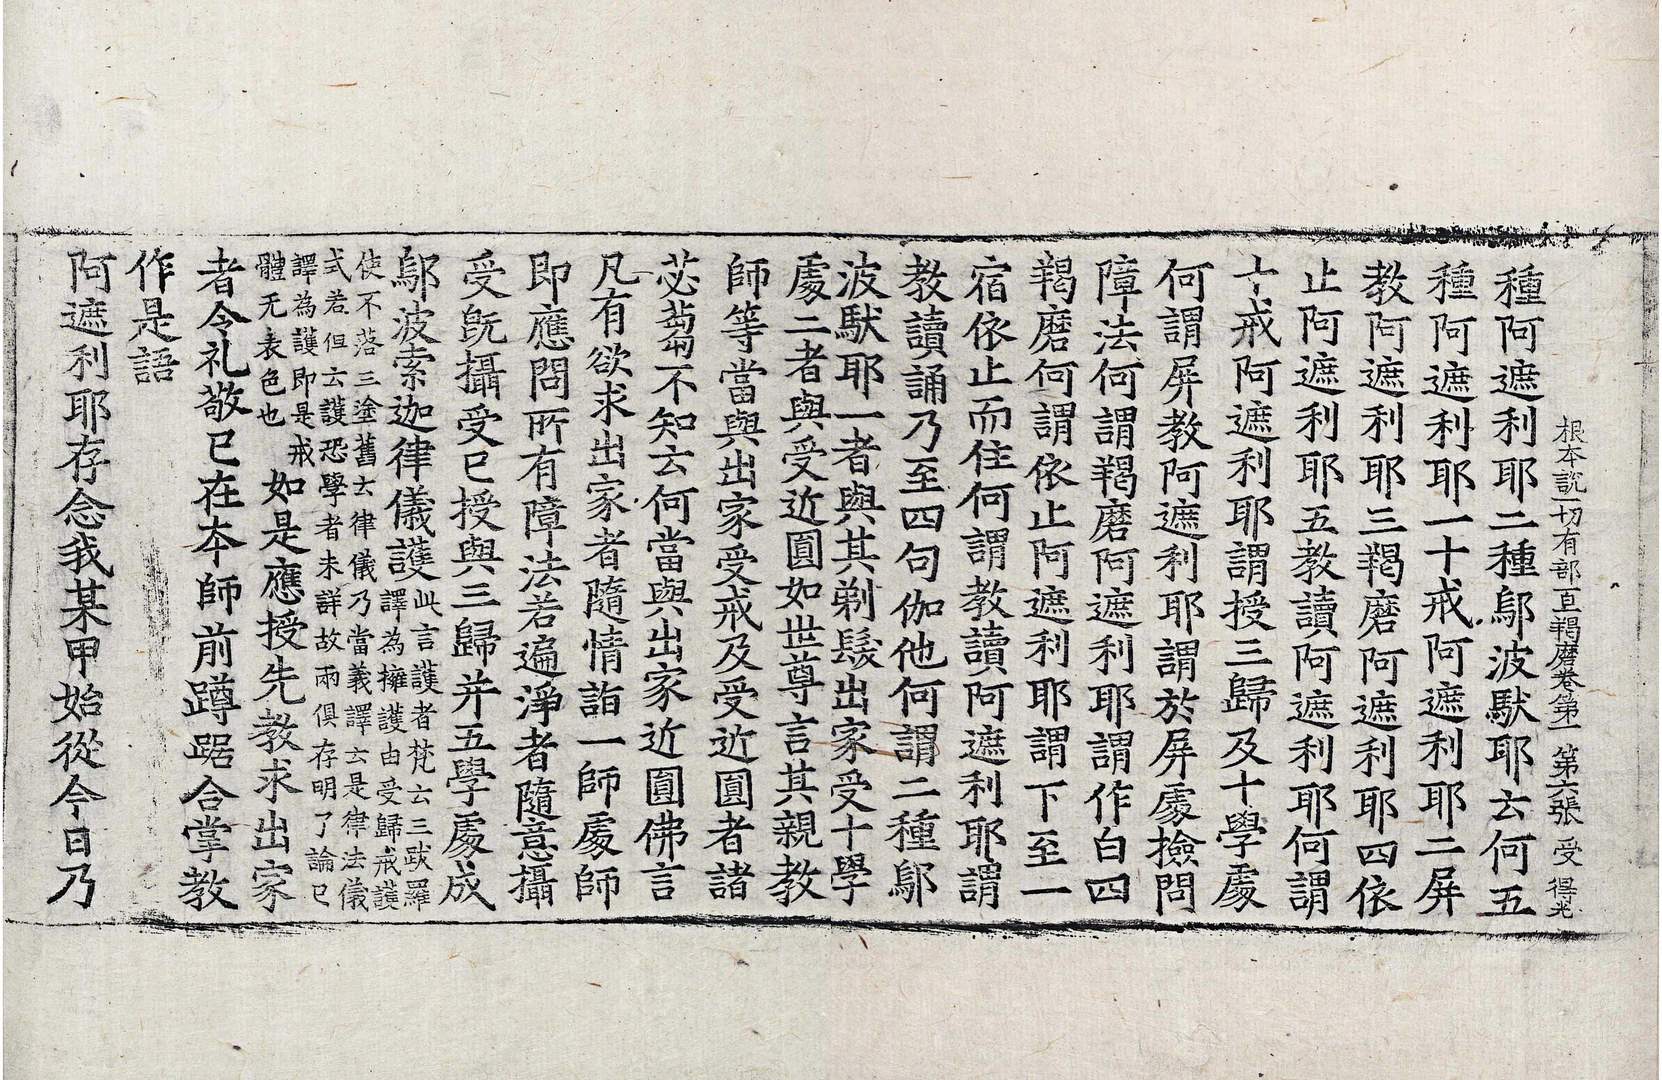 根本說一切有部百羯磨卷第一 第六張 受 得光
種阿遮利耶二種鄔波馱耶云何五
種阿遮利耶一十戒阿遮利耶二屏
教阿遮利耶三羯磨阿遮利耶四依
止阿遮利耶五教讀阿遮利耶何謂
十戒阿遮利耶謂授三歸及十學處
何謂屏教阿遮利耶謂於屏處撿問
障法何謂羯磨阿遮利耶謂作白四
羯磨何謂依止阿遮利耶謂下至一
宿依止而住何謂教讀阿遮利耶謂
教讀誦乃至四句伽他何謂二種鄔
波馱耶一者與其剃髮出家受十學
處二者與受近圓如世尊言其親教
師等當與出家受戒及受近圓者諸
苾蒭不知云何當與出家近圓佛言
凡有欲求出家者隨情詣一師處師
即應問所有障法若遍淨者隨意攝
受旣攝受已授與三歸并五學處成
鄔波索迦律儀護此言護者梵云三跋羅
譯為擁護由受歸戒護
使不落三塗舊云律儀乃當義譯云是律法儀
式若但云護恐學者未詳故兩俱存明了論已
譯為護即是戒
體无表色也
如是應授先教求出家
者令礼敬已在本師前蹲踞合掌教
作是語
阿遮利耶存念我某甲始從今日乃